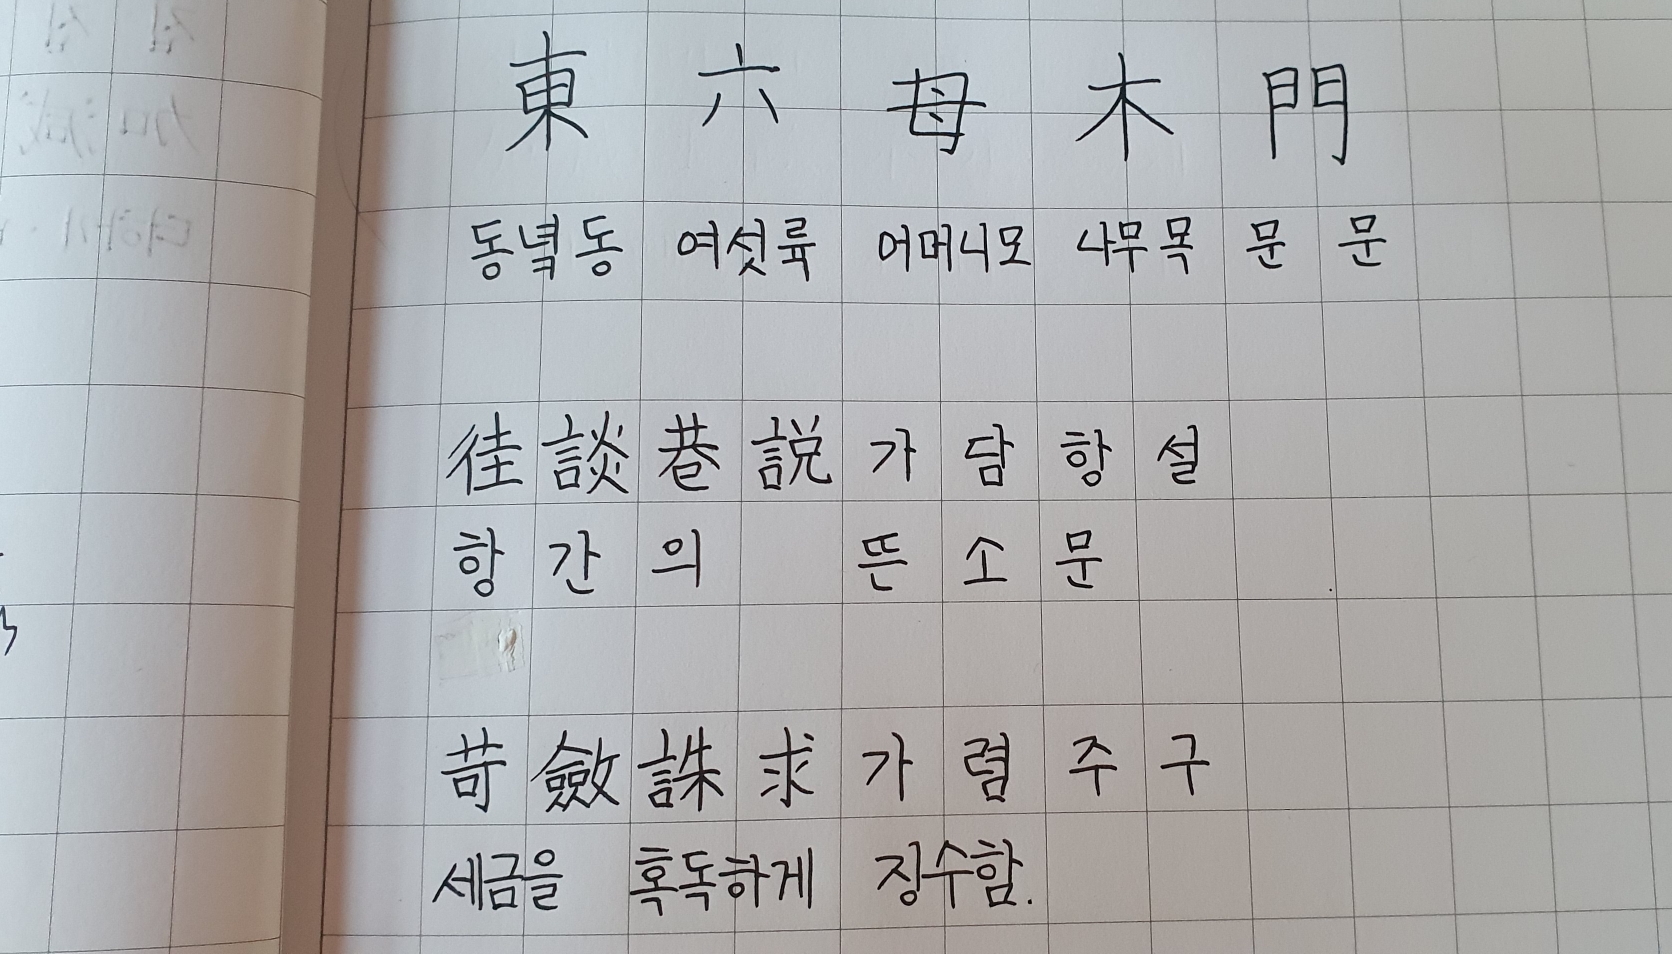 東 六 母 木 門
동녘동 여섯륙 어머니모 나무목 문 문
徍談巷説 가담항설
항간의 뜬소문
苛斂誅求 가렴주구
세금을 혹독하게 징수함.